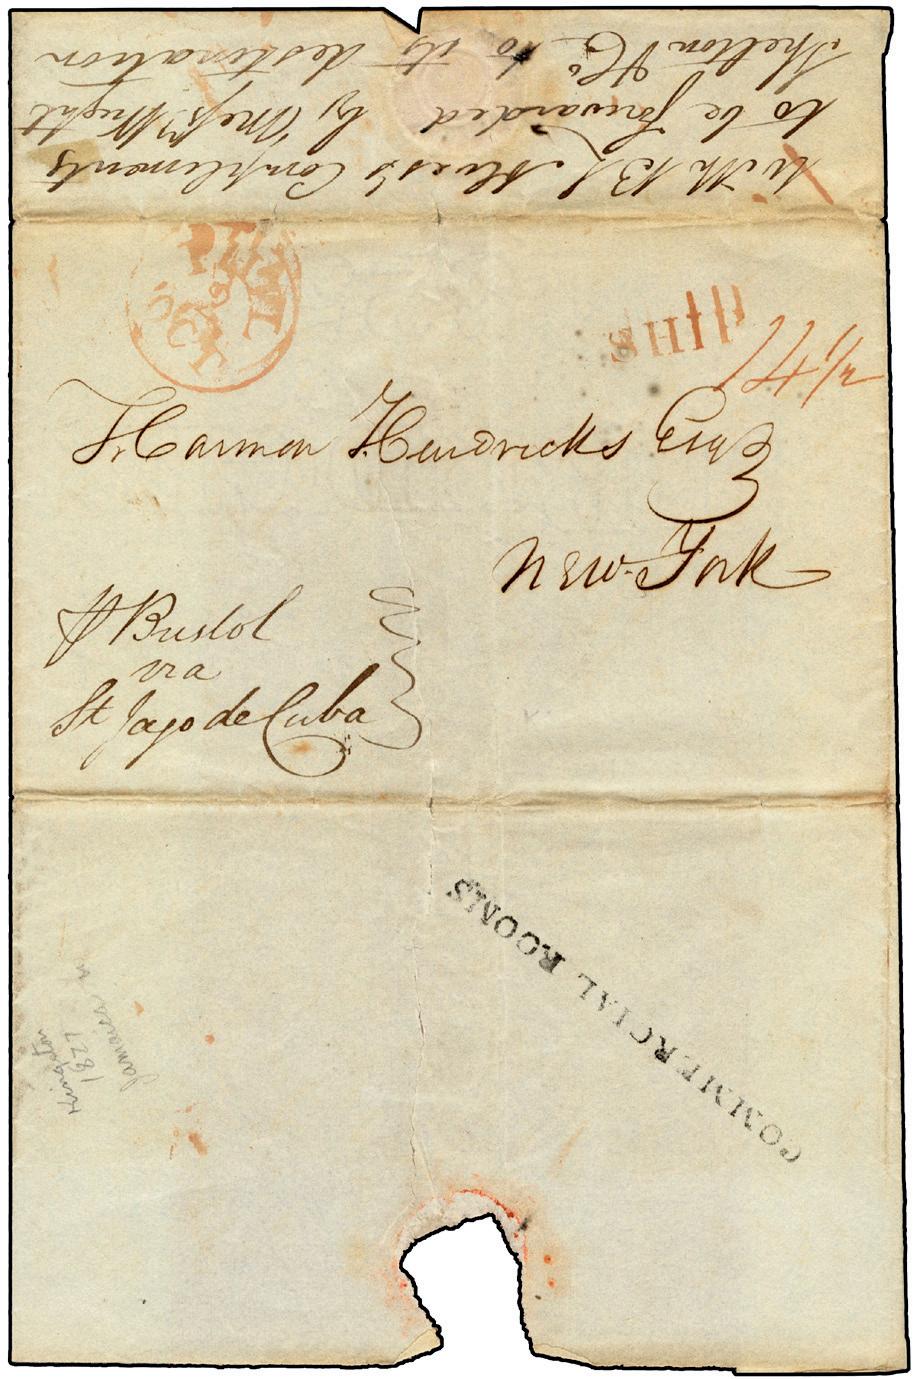 With B Complements
to be forwarded by Messrs Wright
Shelton & Co. to its destination
SHIP
14 1/2
Harmon Hendricks Esqr
New-York
P Bristol
via
St Jago de Cuba
COMMERCIAL ROOMS
Kingston
1827
Jamaica